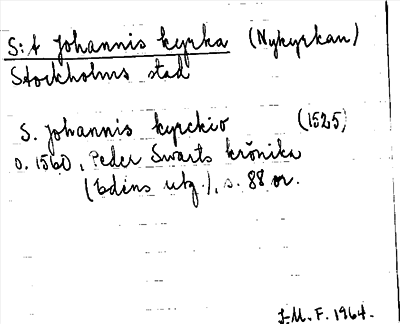 S:t Johannis kyrka (Nykyrkan)
Stockholms stad
S. Johannis kyrckio (1525)
o. 1560, Peder Swarts krönika
(Edéns utg.), s. 88 or.
J.M.F. 1964.